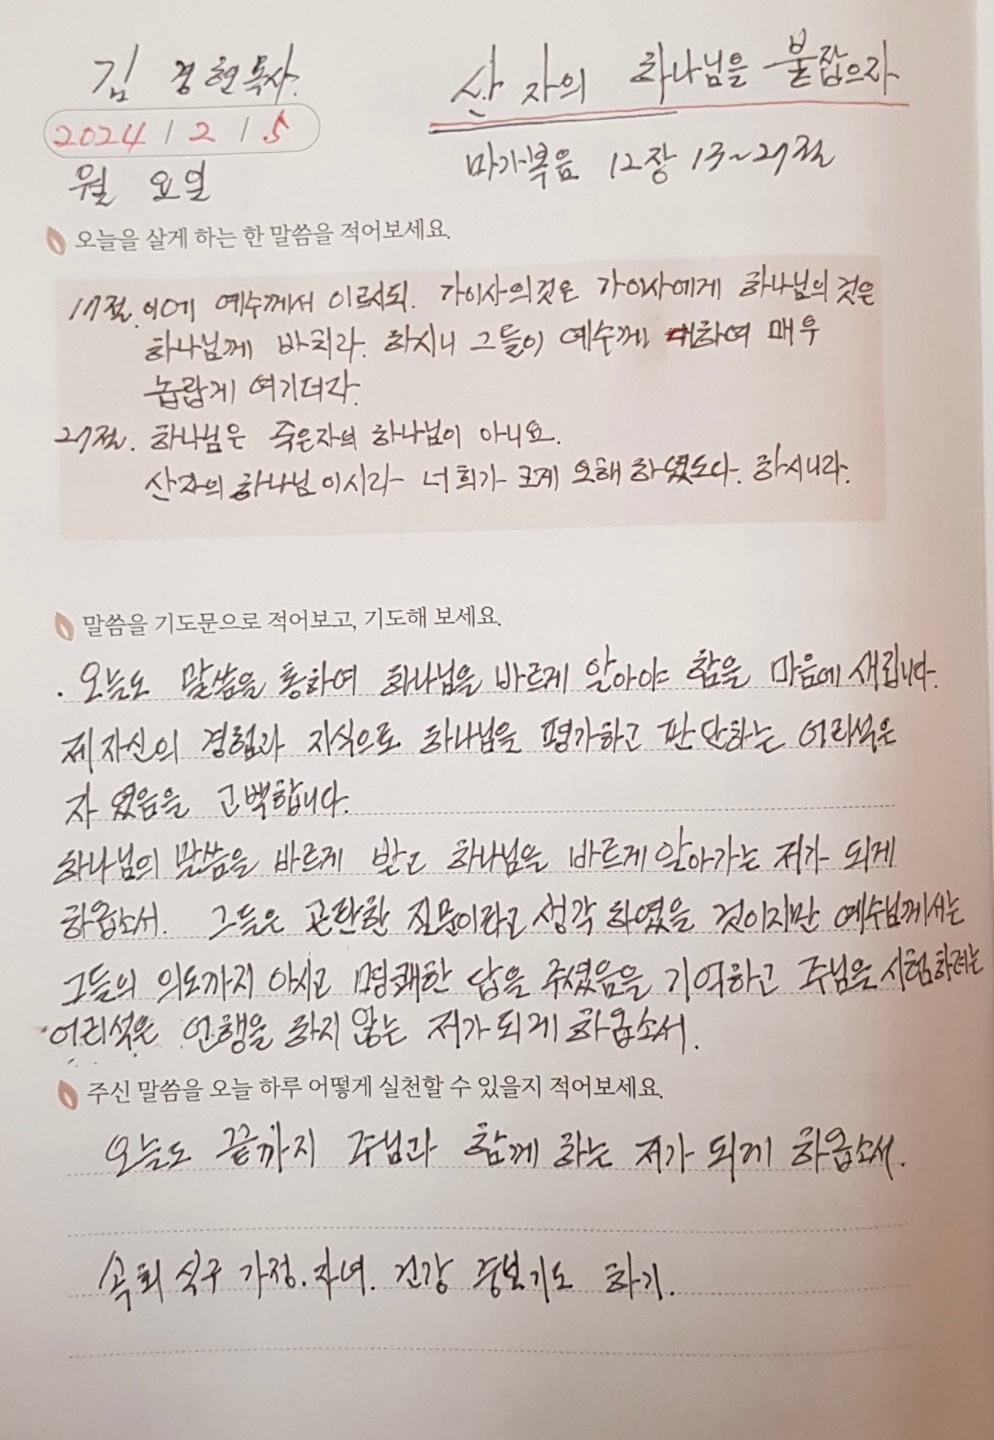 김 경현목사.
산 자의 하나님을 붙잡으라
2024 / 2 / 5
월 요일
마가복음 12장 13~27절
오늘을 살게 하는 한 말씀을 적어보세요.
17절. 이에 예수께서 이르시되. 가이사의것은 가이사에게 하나님의 것은
하나님께 바치라. 하시니 그들이 예수께 대하여 매우
놀랍게 여기더라.
27절. 하나님은 죽은자의 하나님이 아니요.
산자의 하나님 이시라 너희가 크게 오해 하였도다. 하시니라.
말씀을 기도문으로 적어보고, 기도해 보세요.
. 오늘도 말씀을 통하여 하나님을 바르게 알아야 함을 마음에 새깁니다.
제 자신의 경험과 지식으로 하나님을 평가하고 판단하는 어리석은
자 였음을 고백합니다.
하나님의 말씀을 바르게 받고 하나님을 바르게 알아가는 저가 되게
하옵소서. 그들은 곤란한 질문이라고 생각 하였을 것이지만 예수님께서는
그들의 의도까지 아시고 명쾌한 답을 주셨음을 기억하고 주님을 시험하려는
어리석은 언행을 하지 않는 저가 되게 하옵소서.
주신 말씀을 오늘 하루 어떻게 실천할 수 있을지 적어보세요.
오늘도 끝까지 주님과 함께 하는 저가 되게 하옵소서.
속회 식구 가정. 자녀. 건강 중보기도 하기.